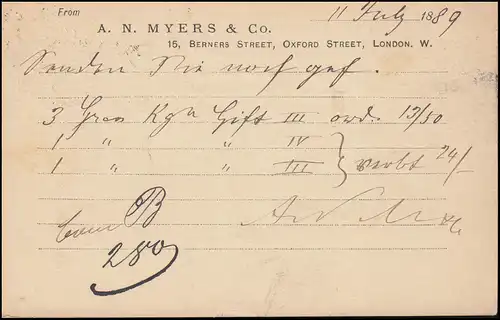 From 11 July 1889
A. N. MYERS & Co.
15, BERNERS STREET, OXFORD STREET, LONDON. W.
Senden Sie noch gef.
3 Gros Kgn Gift III ord. 13/50
1 " " IV
1 " " III } verbt 24/-
B
280